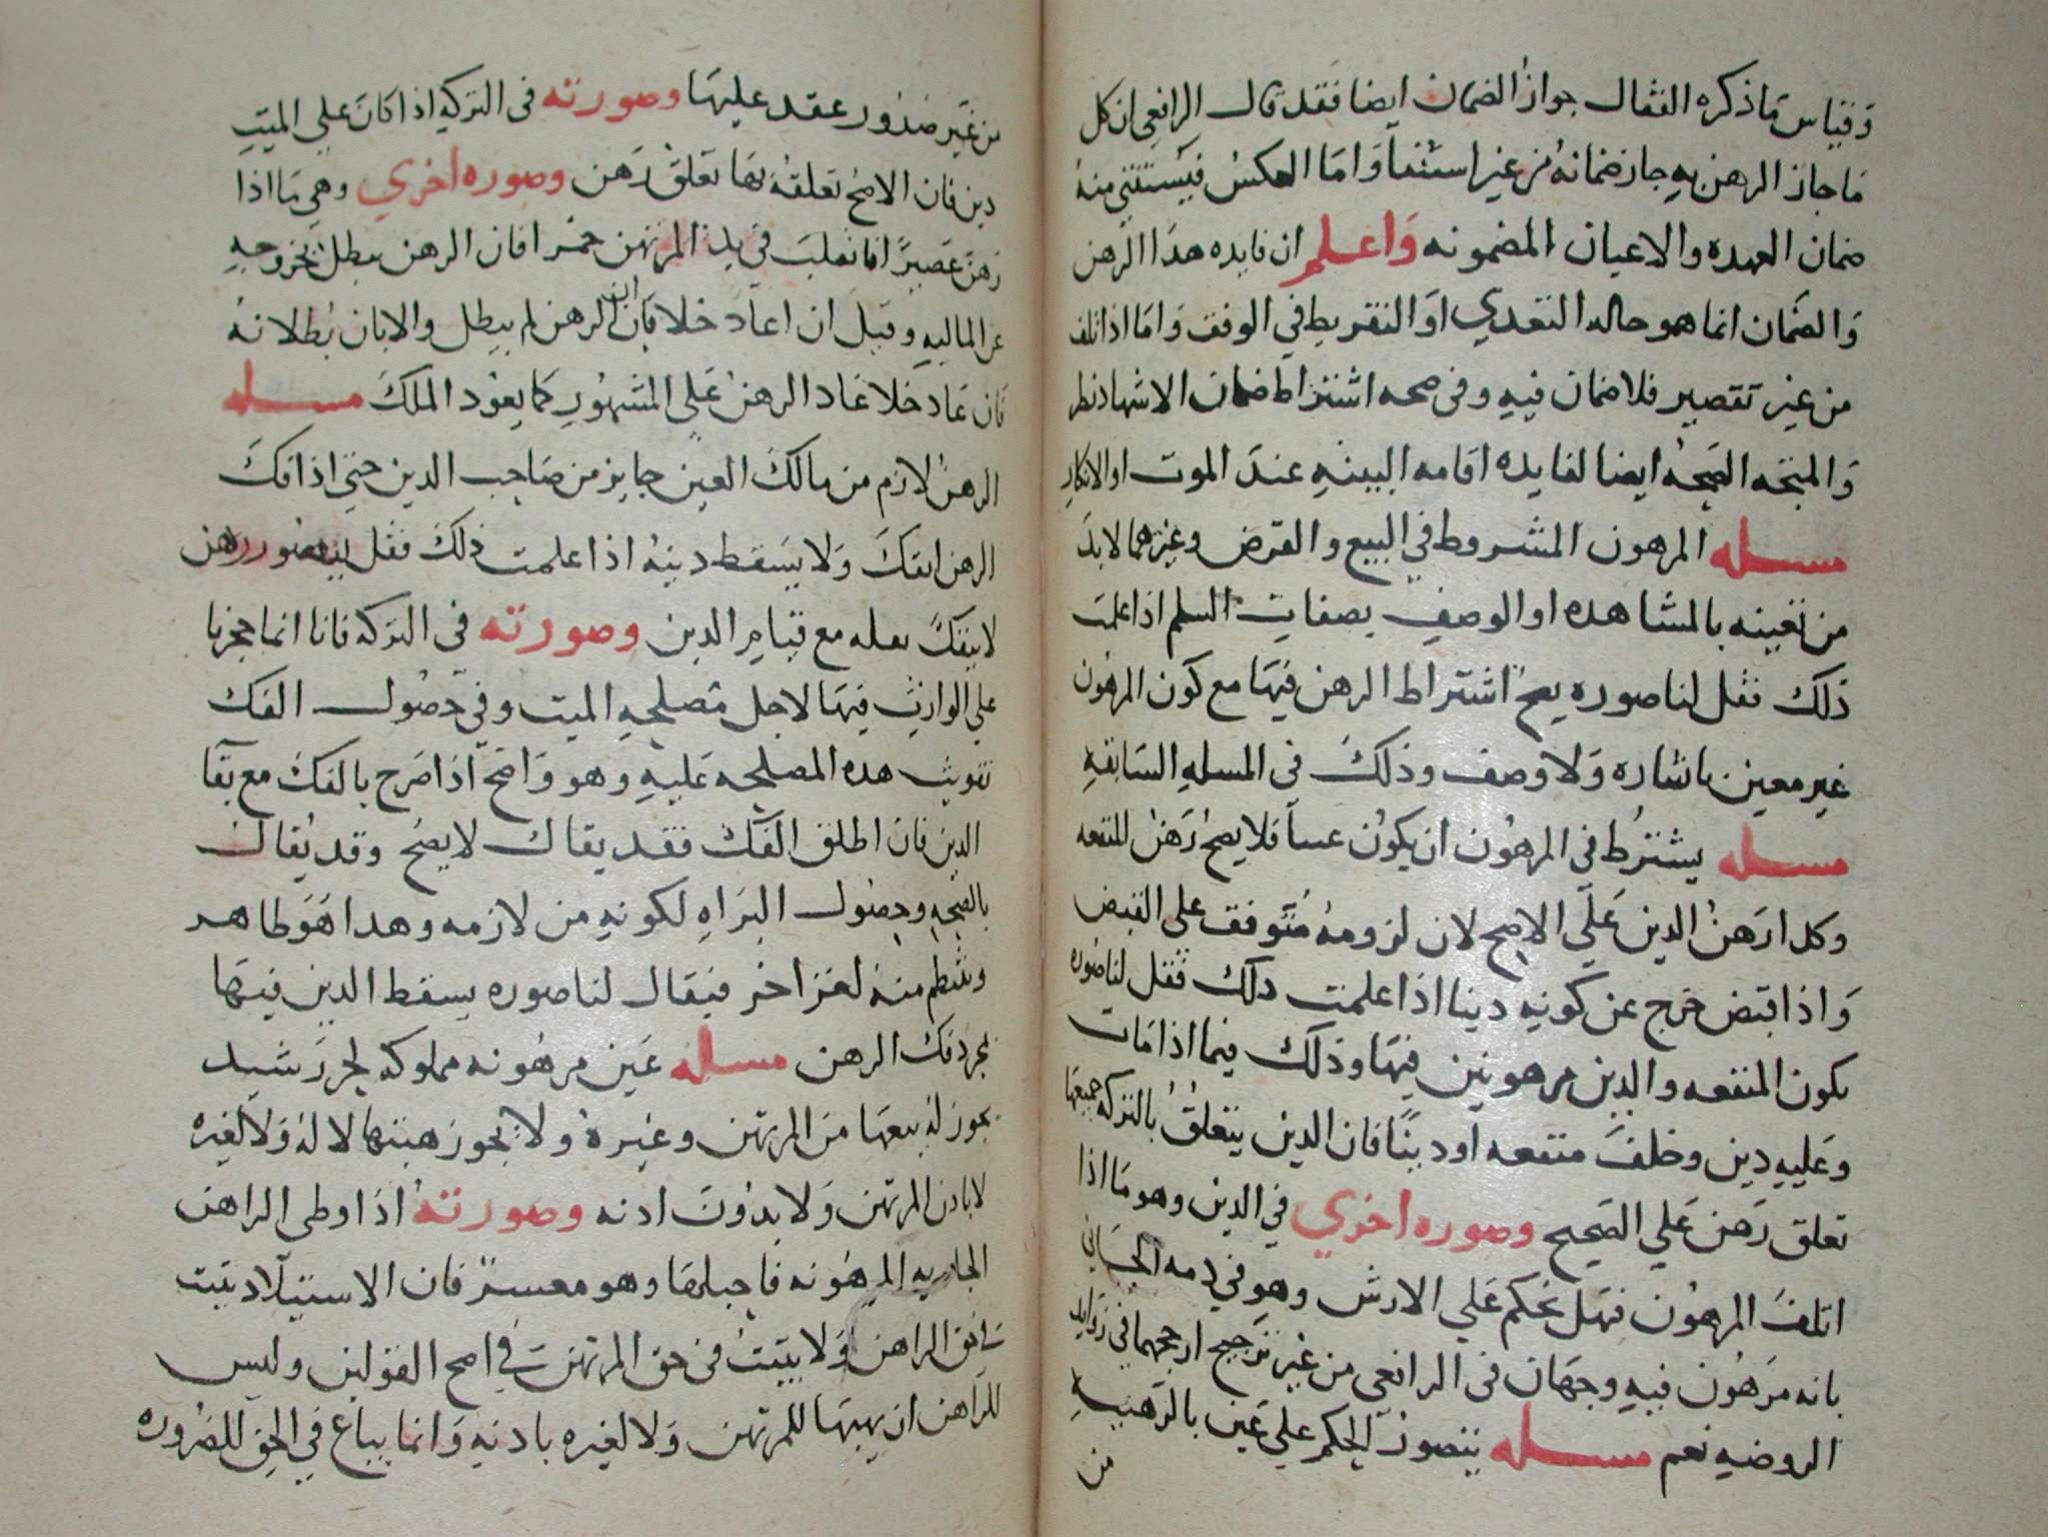 وقياس ما ذكره القفال جواز الضمان ايضا فقد قال الرافعى ان كل
ما جاز الرهن به جاز ضمانه من غير استثنا واما العكس فيستثنى منه
ضمان العهده والاعيان المضمونه واعلم ان فايده هدا الرهن
والضمان انما هو حاله التعدي او التفريط في الوقف واما اذا تلف
من غير تقصير فلا ضمان فيه وفى صحه اشتراط ضمان الاشهاد نظر
والمتجه الصحه ايضا لفايده اقامه البينه عند الموت او الانكار
مسله المرهون المشروط في البيع والقرض وغيرهما لا بد
من تعيينه بالمشاهده او الوصف بصفات السلم اذا علمت
ذلك فقل لنا صوره يصح اشتراط الرهن فيها مع كون المرهون
غير معين باشاره ولا وصف وذلك فى المسله السابقه
مسله يشترط فى المرهون ان يكون عينا فلا يصح رهن المنفعه
وكدا رهن الدين على الاصح لان لزومه متوقف على القبض
واذا قبض خرج عن كونه دينا اذا علمت دلك فقل لنا صوره
يكون المنفعه والدين مرهونين فيها وذلك فيما اذا مات
وعليه دين وخلف منفعه او دينا فان الدين يتعلق بالتركه جميعها
تعلق رهن علي الصحيح وصوره اخري في الدين وهو ما اذا
اتلف المرهون فهل يحكم علي الارش وهو في ذمه الجاني
بانه مرهون فيه وجهان فى الرافعي من غير ترجيح ارجحهما في زوايد
الروضه نعم مسله يتصور الحكم علي عين بالرهنيه
من
من غير صدور عقد عليها وصورته فى التركه اذا كان على الميت
دين فان الاصح تعلقه بها تعلق رهن وصوره اخري وهي ما اذا
رهن عصيرا فانقلب في يد المرتهن خمرا فان الرهن يبطل بخروجه
عن الماليه وقيل ان اعاد خلا بان ان الرهن لم يبطل والا بان بطلانه
فان عاد خلا عاد الرهن على المشهور كما يعود الملك مسله
الرهن لازم من مالك العين جايز من صاحب الدين حتى اذا فك
الرهن انفك ولا يسقط دينه اذا علمت ذلك فقل لنا رهن
لا ينفك بفله مع قيام الدين وصورته في التركه فانا انما حجرنا
علي الوارث فيها لاجل مصلحه الميت وفي حصول الفك
تفويت هده المصلحه عليه وهو واضح اذا صرح بالفك مع بقا
الدين فان اطلق الفك فقد يقال لا يصح وقد يقال
بالصحه وحصول البراه لكونه من لازمه وهدا هو طاهر
وينتظم منه لغز اخر فيقال لنا صوره يسقط الدين فيها
بمجرد فك الرهن مسله عين مرهونه مملوكه لحر رشيد
يجوز له بيعها من المرتهن وغيره ولا يجوز هبتها لا له ولا لغيره
لا بادن المرتهن ولا بدون ادنه وصورته اذا وطى الراهن
الجاريه المرهونه فاحبلها وهو معسر فان الاستيلاد يثبت
في حق الراهن ولا يثبت فى حق المرتهن في اصح القولين وليس
للراهن ان يهبها للمرتهن ولا لغيره بادنه وانما يباع في الحق للضروره